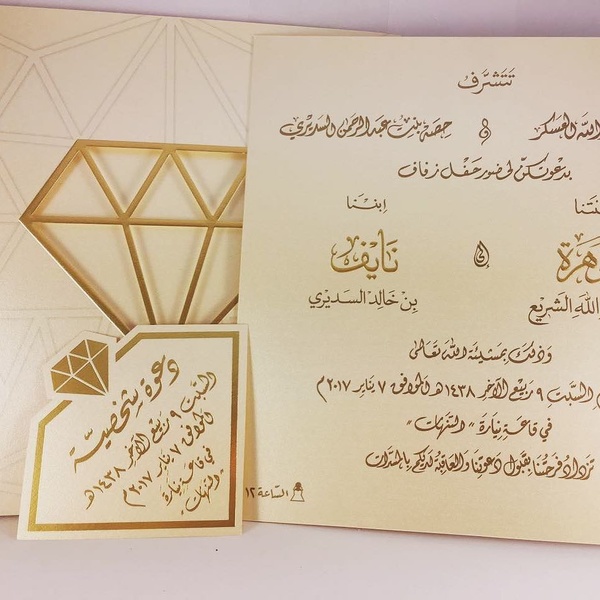 تتشرف
الله العسكر و حصة بنت عبدالرحمن السديري
بدعوتكن لحضور حفل زفاف
ابننا
إلى نايف
الله الشريع بن خالد السديري
وذلك بمشيئة الله تعالى
السبت ٩ ربيع الآخر ١٤٣٨هـ الموافق ٧ يناير ٢٠١٧م
في قاعة نيارة "
تزداد فرحتنا بقبول دعوتنا والعاقبة لديكم بالمسرات
الساعة ١٢
دعوة شخصية
السبت ٩ ربيع الآخر ١٤٣٨هـ
الموافق ٧ يناير ٢٠١٧م
في قاعة نيارة